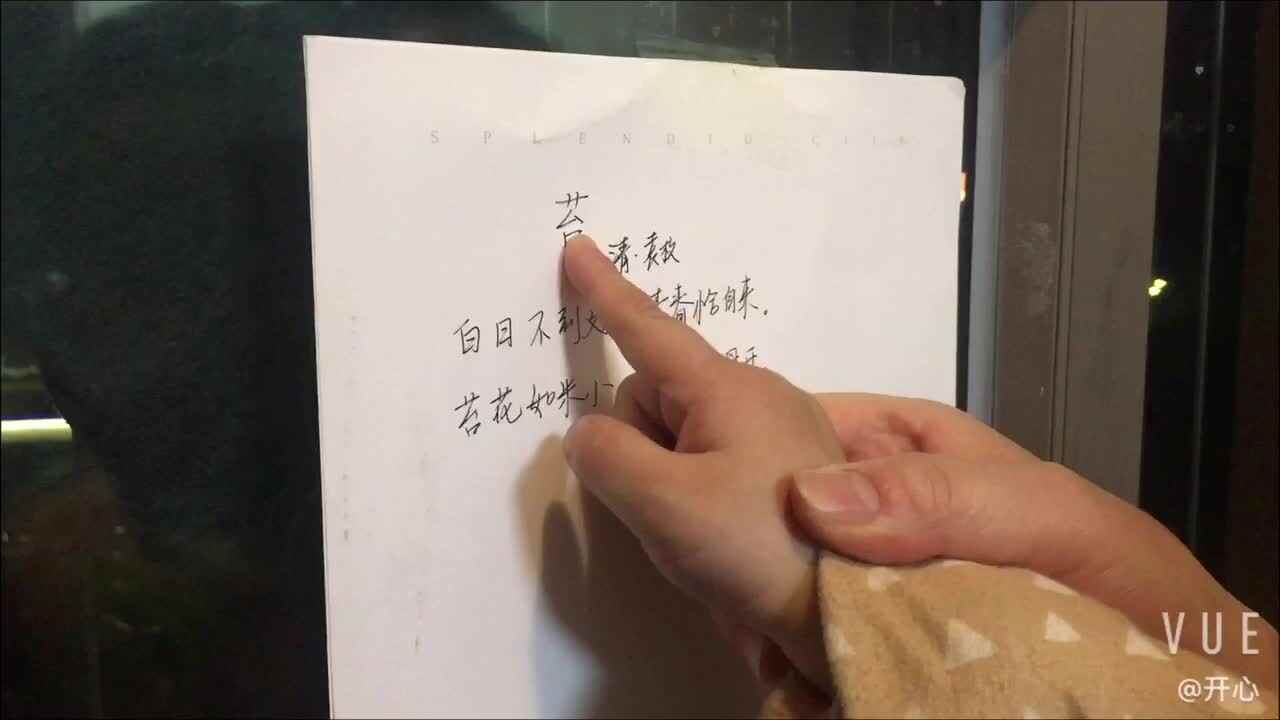 SPLENDID CITY
苔
清·袁枚
白日不到 青春恰自来。
苔花如米小
VUE
@开心